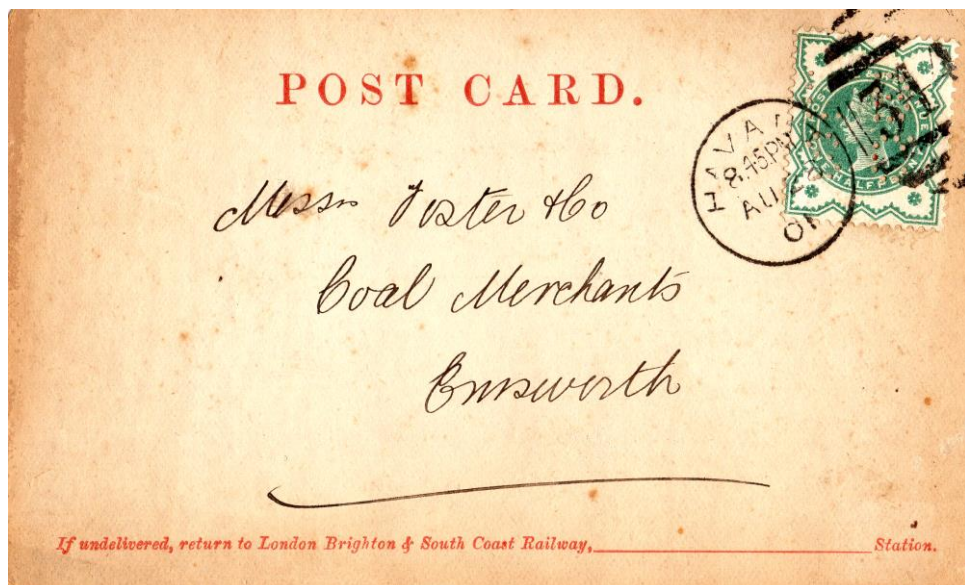 POST CARD.
HAVA
8.45PM
AU
01
Messrs Foster & Co
Coal Merchants
Emsworth
If undelivered, return to London Brighton & South Coast Railway, Station.